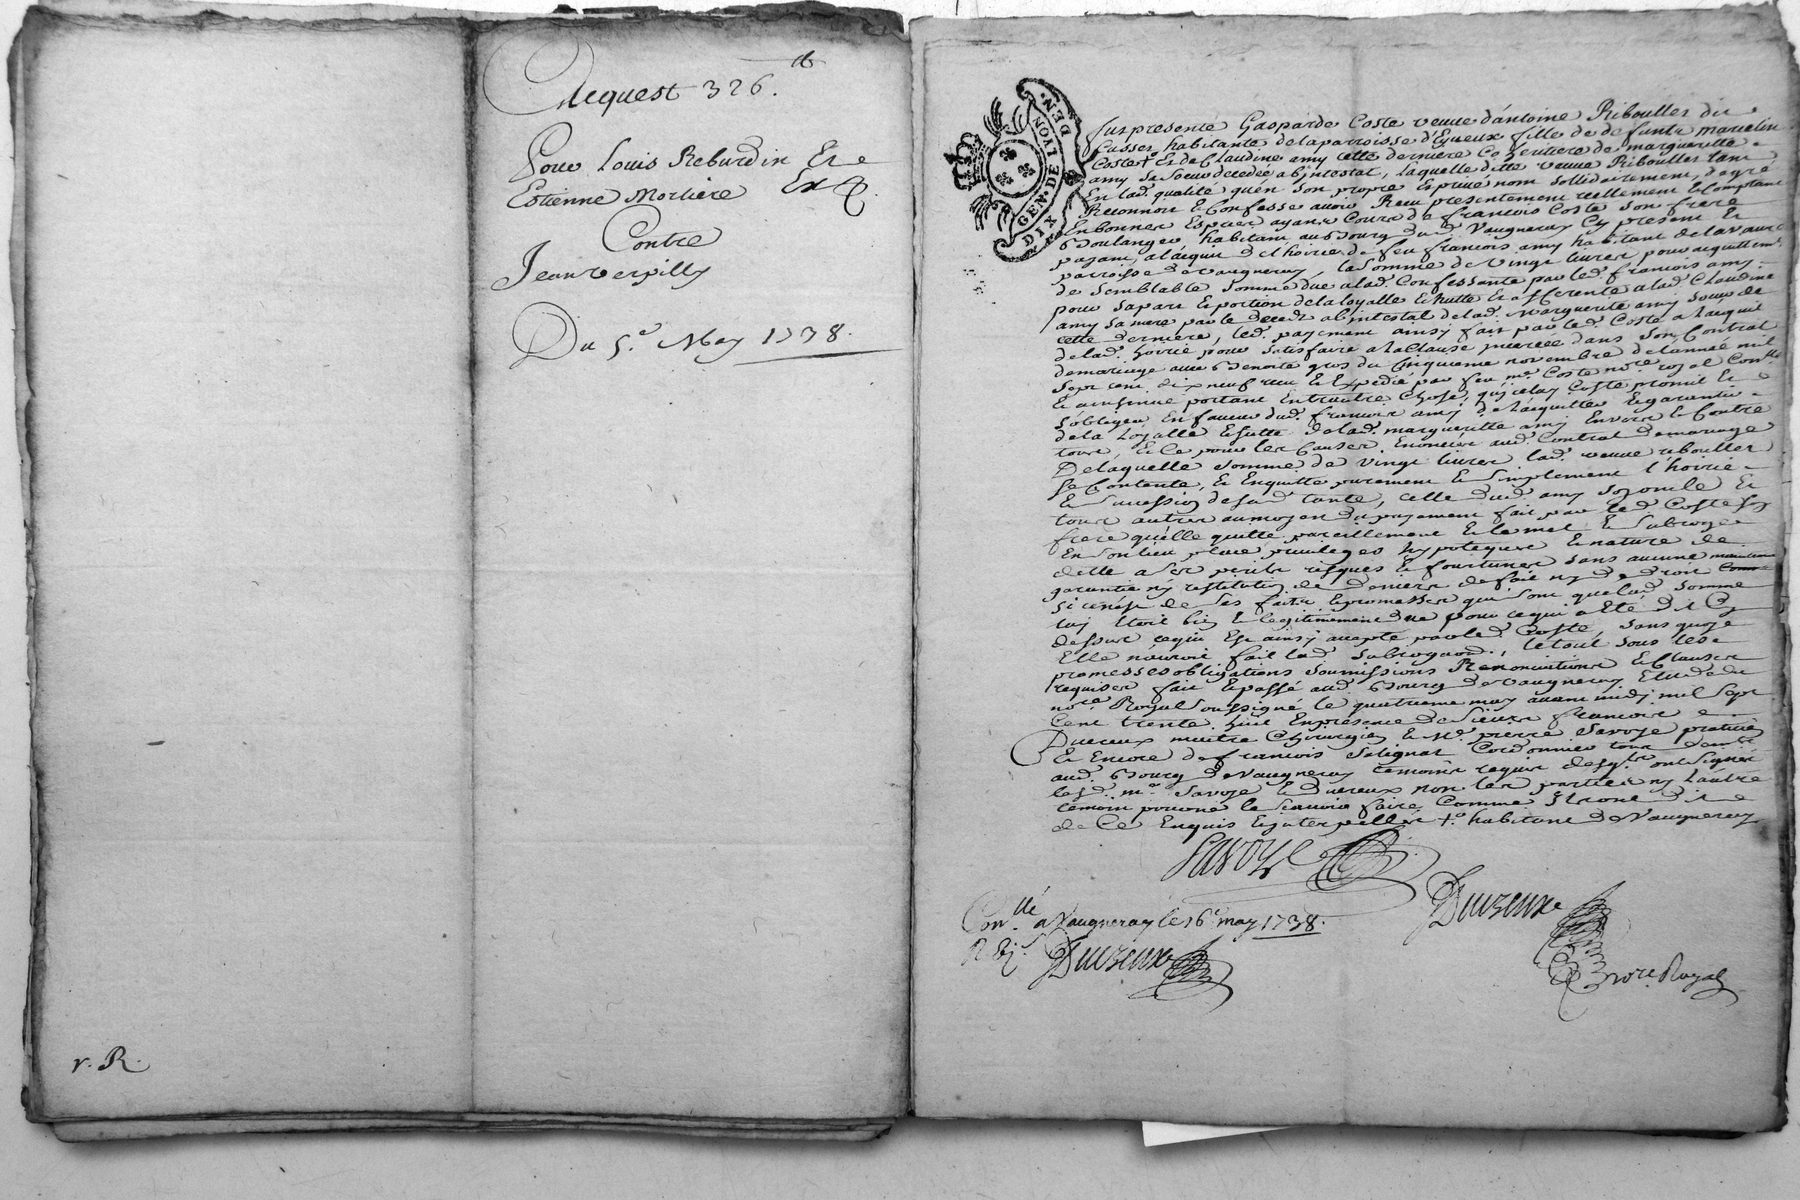 Acquest 326.lt
Pour Louis Reburdin Et
Estienne Morliere Ex
Contre
Jean verpilly
Du 5.e May 1738.
v. R.
GEN. DE LYON
DIX DEN.
fut presente Gasparde Coste veuve d'antoine Riboulles du
Cusset habitante de la parroisse d'Eyueux fille de defunte marcelin
Coste Et de Claudine amy cette derniere Coheritiere de margueritte
amy sa soeur decedée abintestat, laquelle ditte veuve Riboulles tant
En lad. qualité qu'en son propre Et privé nom sollidairement, de gré
Reconnoit & Confesse avoir Receu presentement reellement & Comptant
En bonnes Especes ayant Cours de francois Coste son frere
Boulanger habitant au Bourg dud. Vaugneray Cy present Et
payant, a l'acquit de l'hoirie de feu francois amy habitant de la vaure
parroisse de vaugneray, la somme de vingt livres pour acquittem.t
de semblable somme due a lad. Confessante par led. francois amy
pour sa part & portion de la loyalle Echutte Et afferente a lad. Claudine
amy sa mere par le deceds abintestat de lad. Marguerite amy soeur de
cette derniere, led. payement ainsy fait par led. Coste a l'acquit
de lad. hoirie pour satisfaire a la Clause inseree dans son Contrat
de mariage avec Benoite gros du Cinquieme novembre de l'année mil
sept cent dix neuf receu & Expedié par feu me. Coste no.re royal Con.llé
& ainsinué portant Entr'autre Chose, qu'icelluy Coste promit Et
s'obligea En faveur dud. francois amy de l'acquitter & garantir
de la Loyalle Echutte de lad. margueritte amy Envers & Contre
tous, & Ce pour les Causes Enoncées aud. Contrat de mariage
De laquelle somme de vingt livres lad. veuve riboulles
se Contente, & En quitte purement & simplement l'hoirie
& succession de sad. tante, celle dud. amy son oncle Et
tous autres au moyen du payement fait par led. Coste son
frere qu'elle quitte pareillement & le met & subroge
En son lieu place privileges hypoteques & nature de
dette a ses perils risques & fortunes sans aucune
garantie ny restitution de deniers de fait ny de droit
si ce n'est de ses faits & promesses qui sont que lad. somme
luy Etoit bien & legitimement due pour ce qui a Eté dit Cy
dessus ce qui Est ainsy accepté par led. Coste, sans quoy
Elle n'auroit fait lad. subrogaon., le tout sous les
promesses obligations soumissions Renonciations & Clauses
requises fait & passé aud. Bourg de Vaugneray Etude du
no.re Royal soussigné le quatrieme may avant midy mil sept
Cent trente huit En presence de Sieurs francois
Ducreux maitre Chirurgien & Me. pierre Savoye praticien
& Encore de francois Salignat Cordonnier tous dem.ts
aud. Bourg de Vaugneray temoins requis desq.ls ont signés
lesd. me. Savoye & Ducreux non les parties ny l'autre
temoin pour ne le scavoir faire Comme Ils ont dit
de Ce Enquis & interpellés +. habitant de Vaugneray
Savoye
Ducreux
Con.llé a Vaugneray le 16e may 1738.
Ducreux
nore Royal